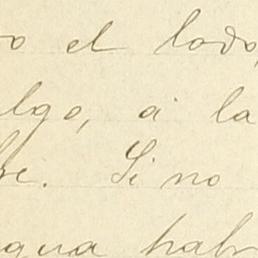 o el lodo,
lgo, á la
re. Si no
gua hab